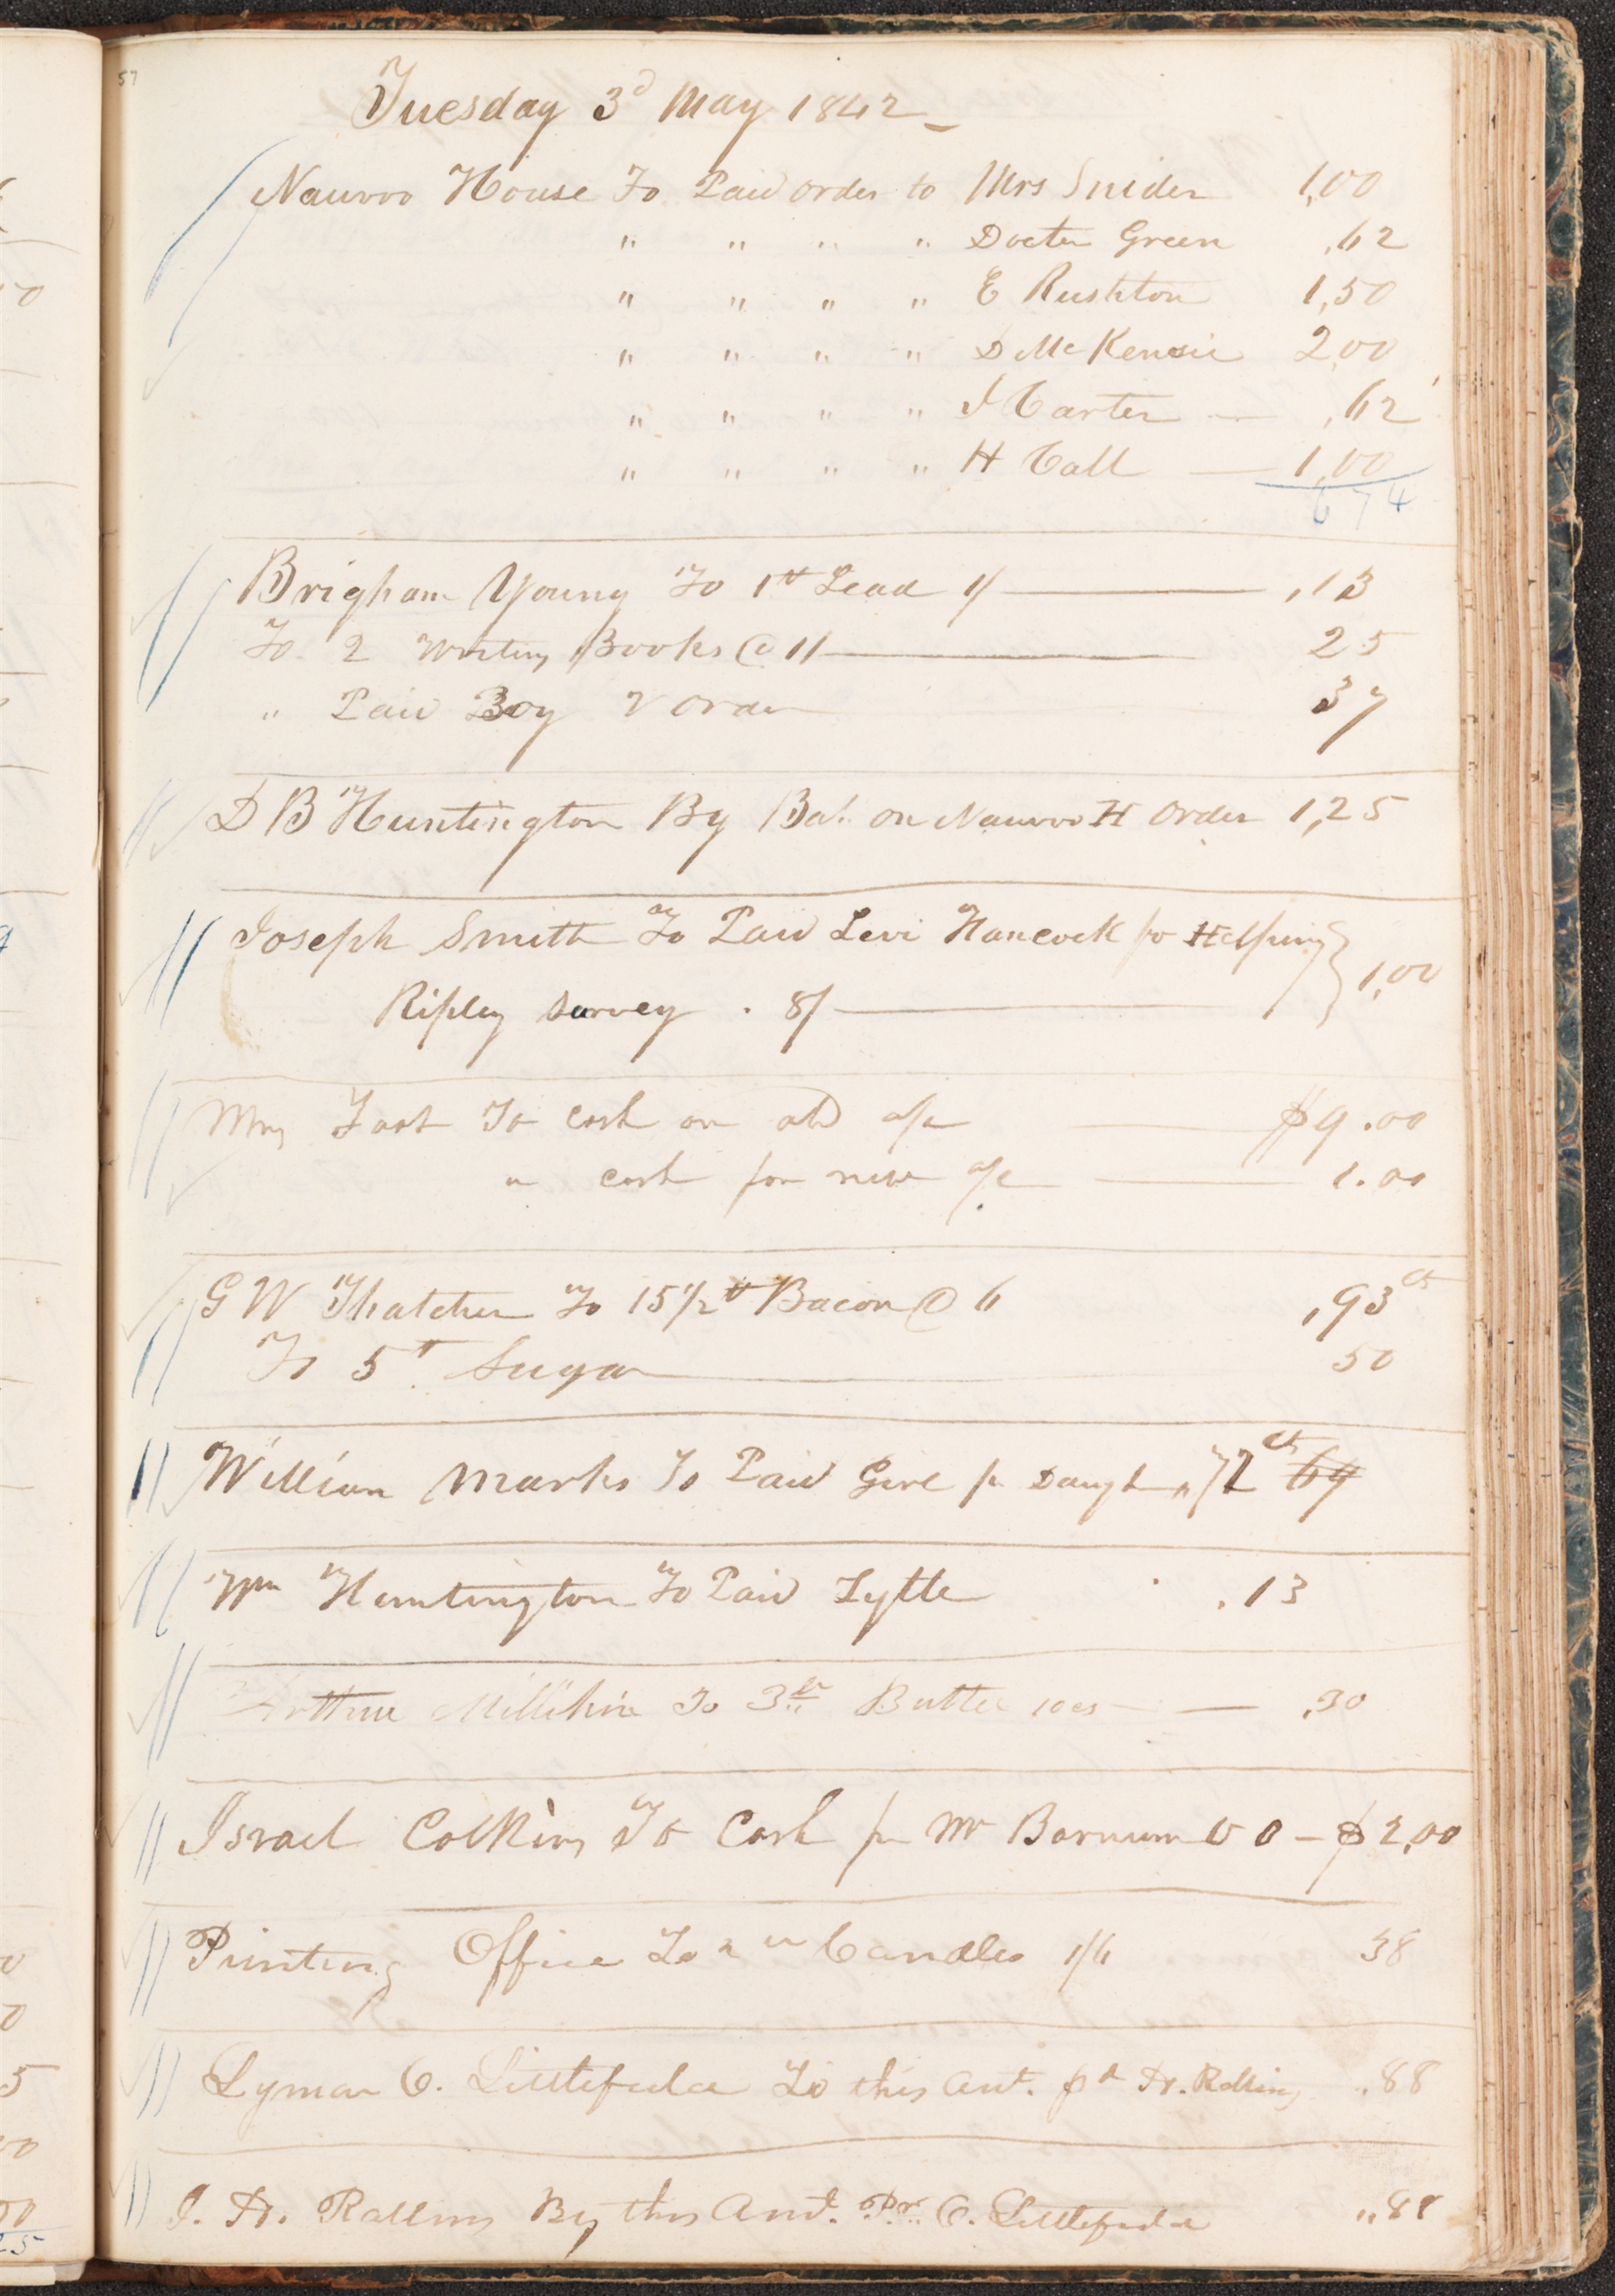 57
Tuesday 3d May 1842
Nauvoo House To Paid order to Mrs Snider 1,00
" " " " Docter Green ,62
" " " " E Rushton 1,50
" " " " D McKensie 2,00
" " " " J Carter — ,62
" " " " H Call — 1,00
6 74
Brigham Young To 1 lb Lead 1/ — ,13
To 2 Writing Books @ 1/ — 25
" Paid Boy order 37
D B Huntington By Bal. on Nauvoo H Order 1,25
Joseph Smith To Paid Levi Hancock fo Helping } 1,00
Ripley survey . 8/ —
To cash on old a/c — $9.00
" cash for new a/c — 1.00
G W Thatcher To 15 1/2 lb Bacon @ 6 ,93 cts
To 5 lb Sugar — 50
William Marks To Paid Girl fr Daught 72 cts 69
Wm Huntington To Paid Lytle .13
Arthur Millikin To 3 lb Butter 10 cs — ,30
Israel Calkins To Cash fr Mr Barnum — $2,00
Printing Office To 2 lb Candles 1/6 38
Lyman O. Littlefield To this amt. pd Rollins .88
J. H. Rollins By this amt. Pr. O. Littlefield ,,88